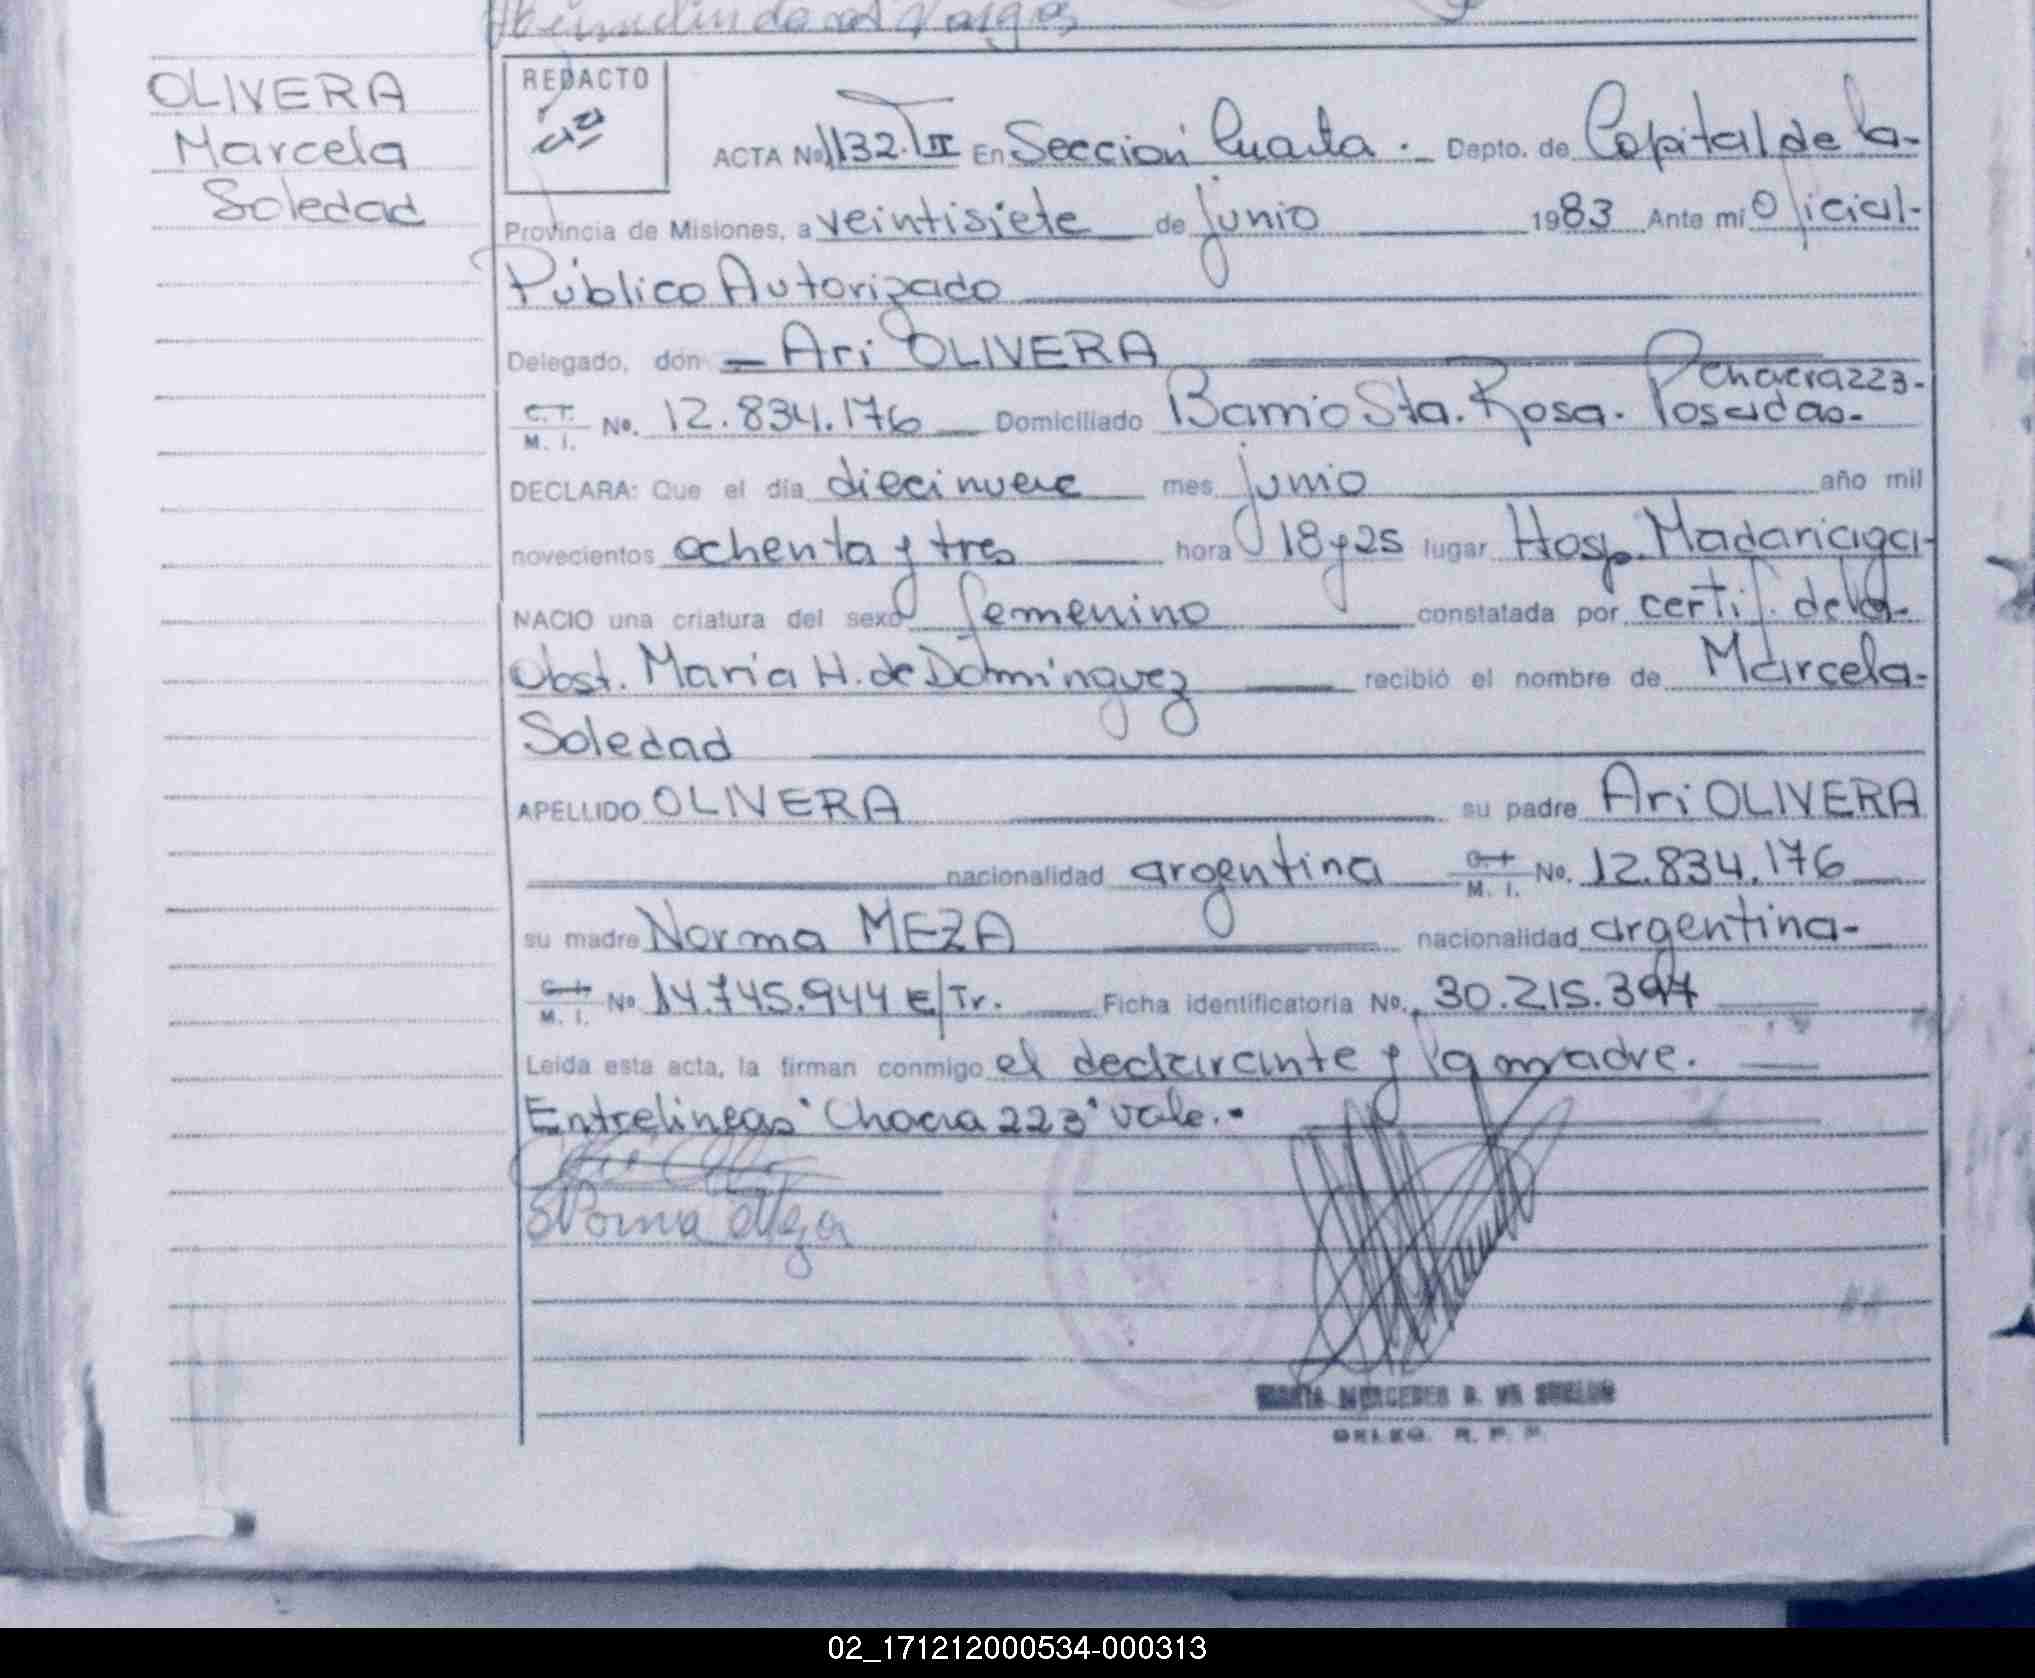 OLIVERA
Marcela
Soledad
REDACTO
ACTA No 1132. T II En Sección Cuarta. Depto. de Capital de la-
Provincia de Misiones, a veintisiete de junio 1983 Ante mi Oficial-
Público Autorizado
Delegado, don Ari OLIVERA
Chacra 223-
C.I. M. I. No. 12.834.176 Domiciliado Barrio Sta. Rosa. Posadas-
DECLARA: Que el día diecinueve mes junio año mil
novecientos ochenta y tres hora 18 y 25 lugar Hosp. Madariaga-
NACIO una criatura del sexo femenino constatada por certif. de la-
Obst. María H. de Domínguez recibió el nombre de Marcela-
Soledad
APELLIDO OLIVERA su padre Ari OLIVERA
nacionalidad argentina C.I. M. I. No. 12.834.176
su madre Norma MEZA nacionalidad argentina-
C.I. M. I. No 14.745.944 E/Tr. Ficha identificatoria No. 30.215.397
Leída esta acta, la firman conmigo el declarante y la madre.
Entrelineas "Chacra 223" vale.-
Norma Meza
MARIA MERCEDES
DELEG. R. P. P.
02_171212000534-000313